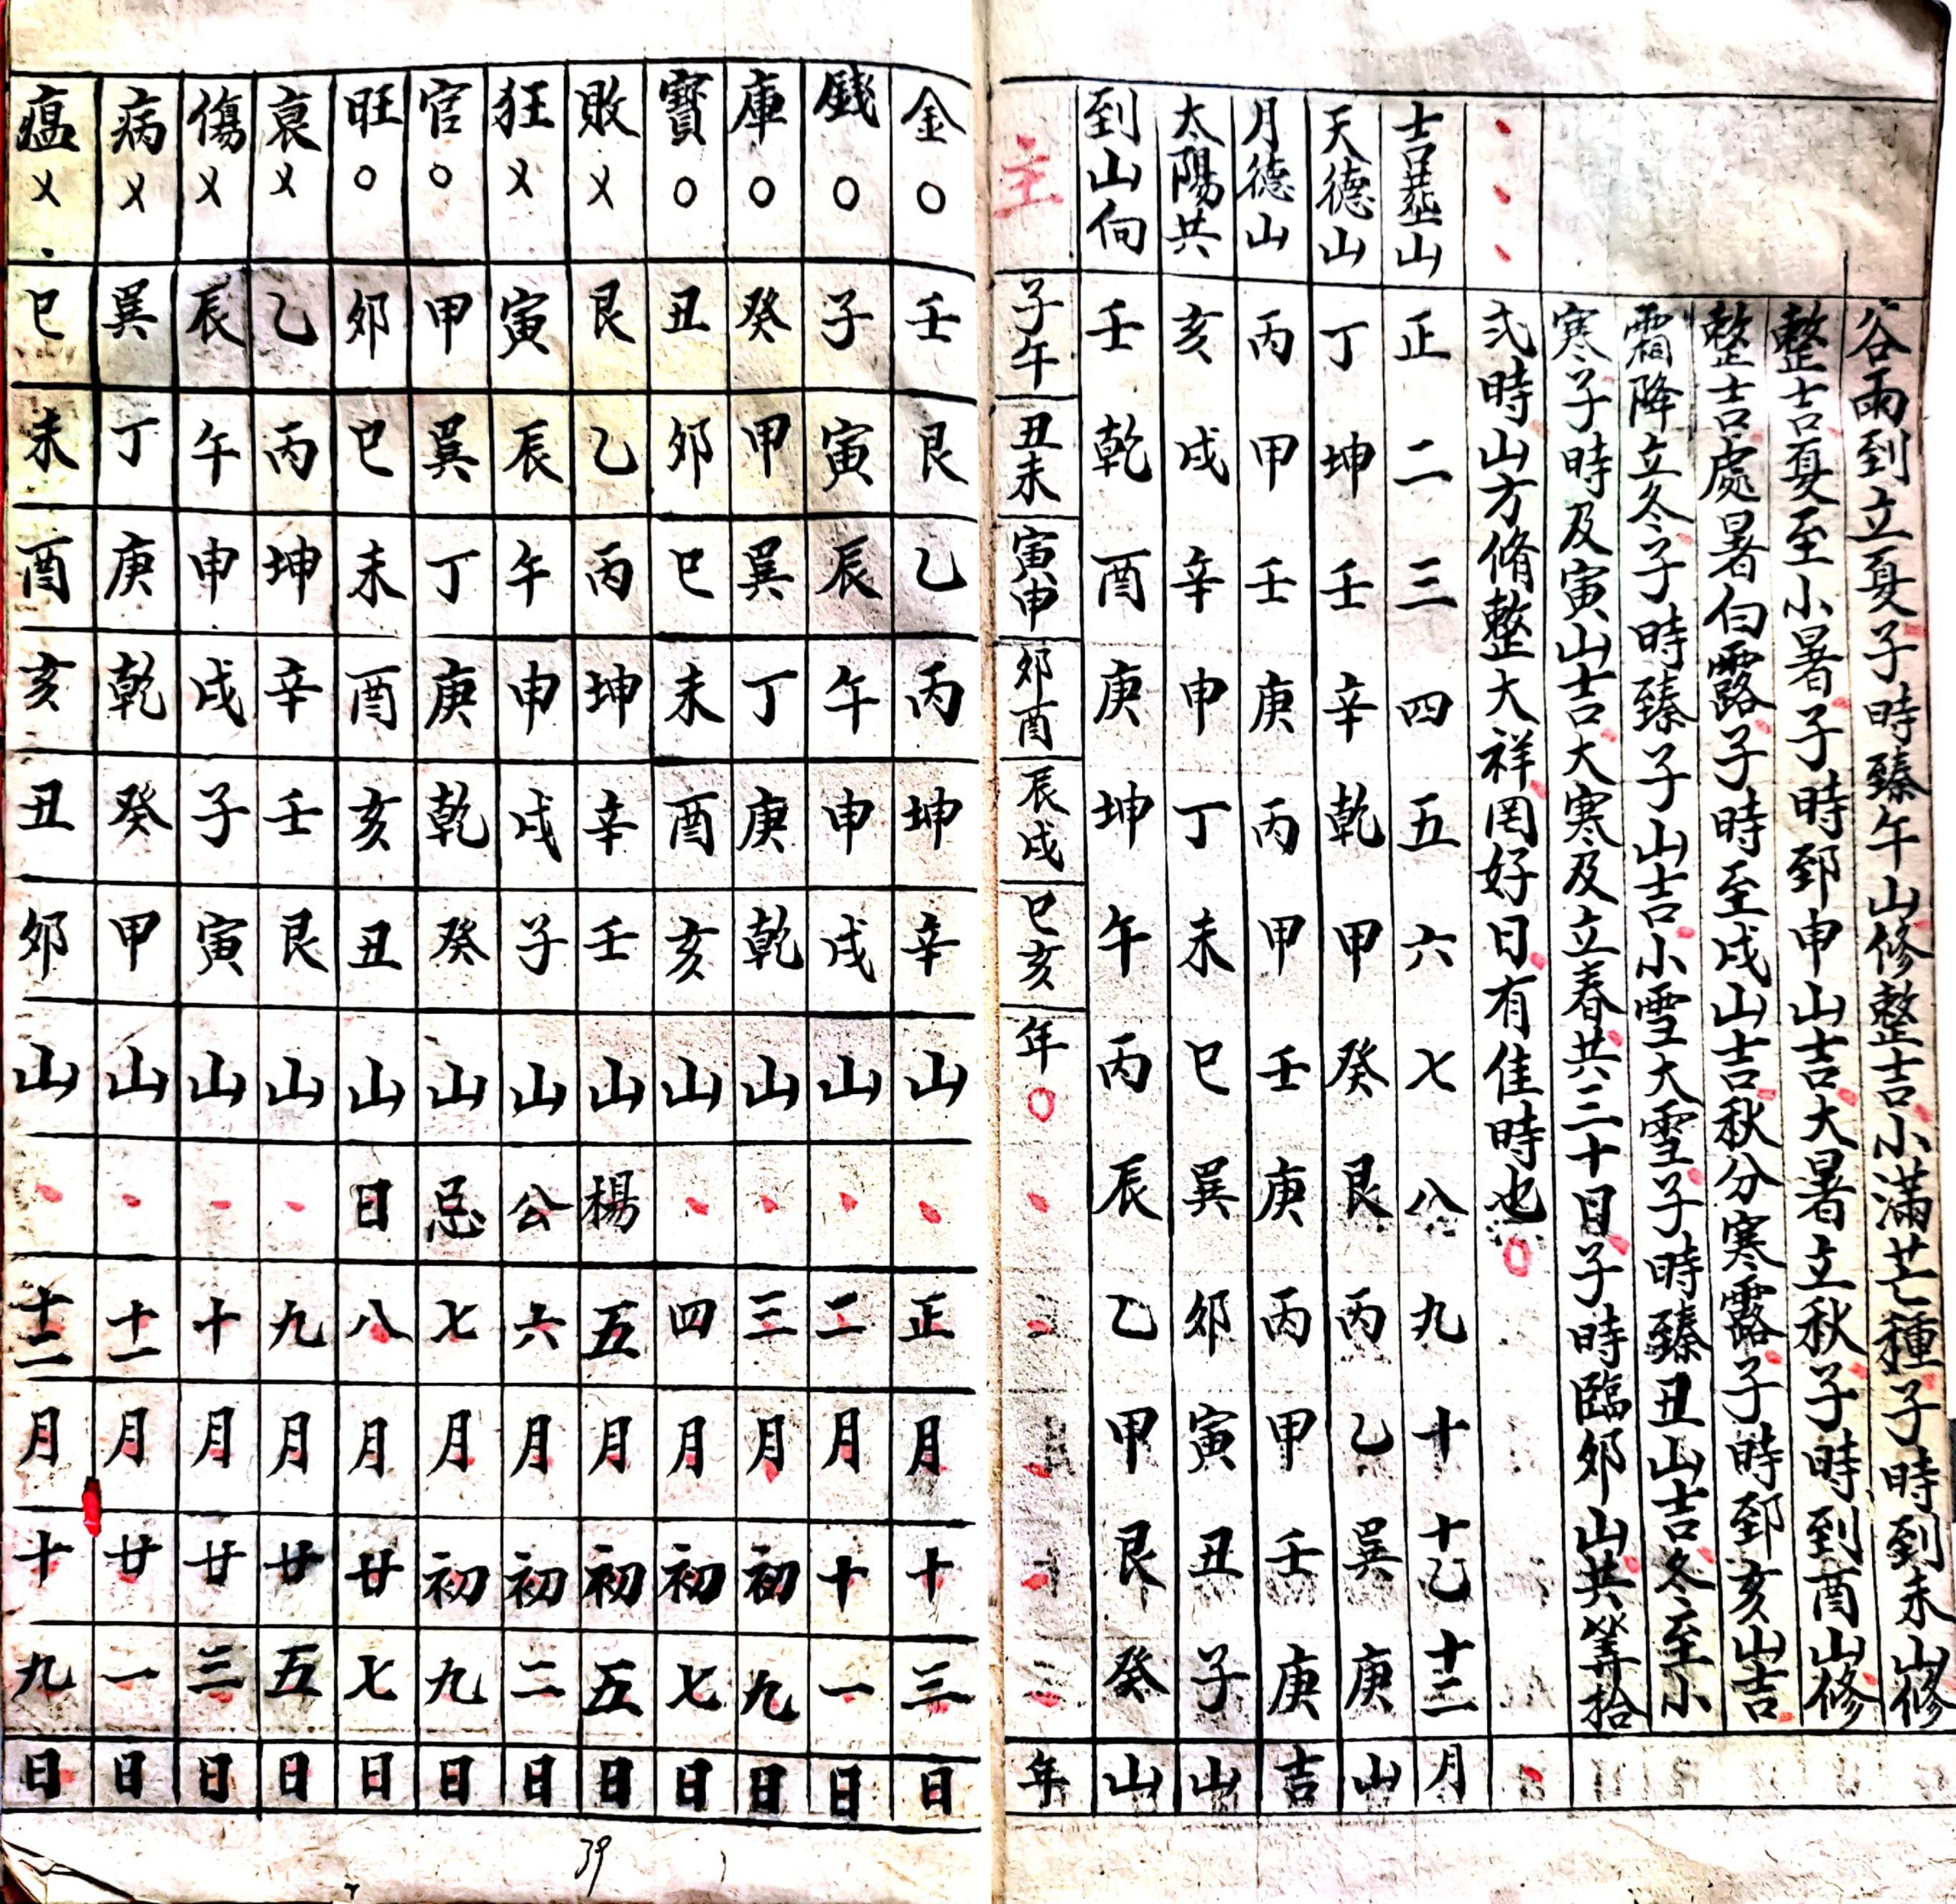 谷雨到立夏子時臻午山修整吉小滿芒種子時到未山修
整吉夏至小暑子時郅申山吉大暑立秋子時到酉山修
整吉處暑白露子時至戌山吉秋分寒露子時郅亥山吉
霜降立冬子時臻子山吉小雪大雪子時臻丑山吉冬至小
寒子時及寅山吉大寒及立春共三十日子時臨卯山共筭拾
弍時山方脩整大祥罔好日有佳時也
吉葬山 正 二 三 四 五 六 七 八 九 十 十乙 十二 月
天德山 丁 坤 壬 辛 乾 甲 癸 艮 丙 乙 巽 庚 山
月德山 丙 甲 壬 庚 丙 甲 壬 庚 丙 甲 壬 庚 吉
太陽共 亥 戌 辛 申 丁 未 巳 巽 卯 寅 丑 子 山
到山向 壬 乾 酉 庚 坤 午 丙 辰 乙 甲 艮 癸 山
主 子午 丑未 寅申 卯酉 辰戌 巳亥 年 年
金○ 壬 艮 乙 丙 坤 辛 山 正 月 十 三 日
錢○ 子 寅 辰 午 申 戌 山 二 月 十 一 日
庫○ 癸 甲 巽 丁 庚 乾 山 三 月 初 九 日
寶○ 丑 卯 巳 未 酉 亥 山 四 月 初 七 日
敗㐅 艮 乙 丙 坤 辛 壬 山 楊 五 月 初 五 日
狂㐅 寅 辰 午 申 戌 子 山 公 六 月 初 二 日
官○ 甲 巽 丁 庚 乾 癸 山 忌 七 月 初 九 日
旺○ 卯 巳 未 酉 亥 丑 山 日 八 月 廿 七 日
衰㐅 乙 丙 坤 辛 壬 艮 山 九 月 廿 五 日
傷㐅 辰 午 申 戌 子 寅 山 十 月 廿 三 日
病㐅 巽 丁 庚 乾 癸 甲 山 十一 月 廿 一 日
瘟㐅 巳 未 酉 亥 丑 卯 山 十二 月 十 九 日
39